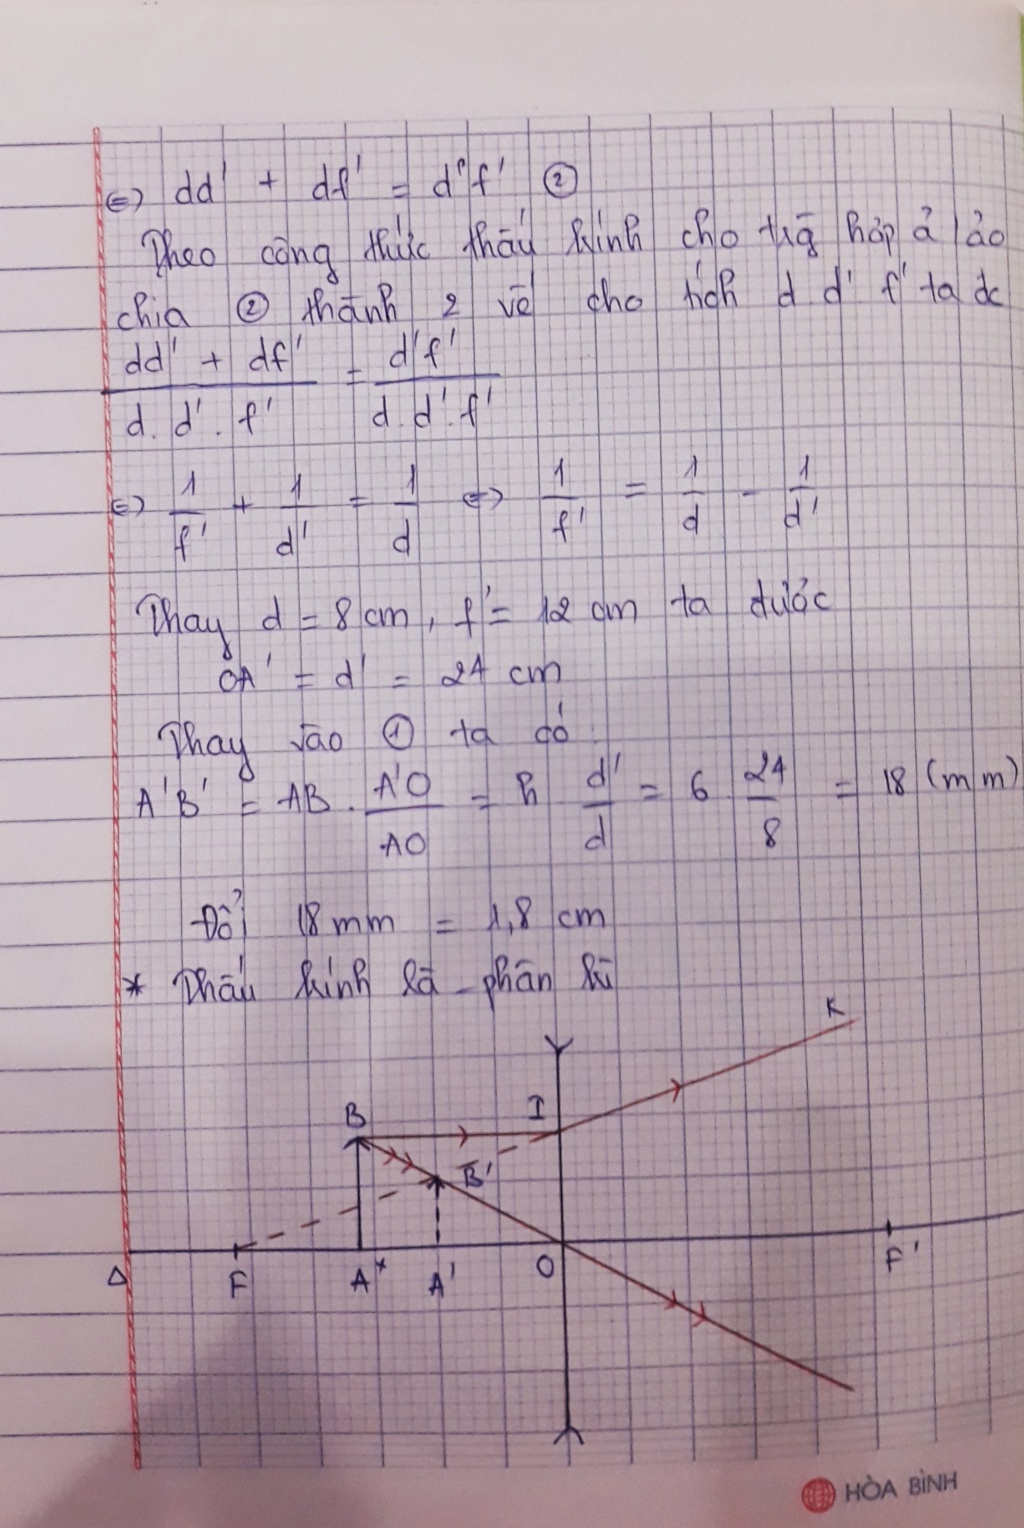 ⇔ dd' + df' = d'f' ②
Theo công thức thấu kính cho trg hợp ả ảo
chia ② thành 2 vế cho tích d d' f' ta đc
dd' + df' / d. d'. f' = d'f' / d. d'. f'
⇔ 1/f' + 1/d' = 1/d ⇔ 1/f' = 1/d - 1/d'
Thay d = 8 cm, f' = 12 cm ta được
OA' = d' = 24 cm
Thay vào ① ta có
A'B' = AB. A'O/AO = h d'/d = 6 24/8 = 18 (mm)
Đổi 18 mm = 1,8 cm
* Thấu kính là phân kì
K
B I
B'
Δ F A A' O F'
HÒA BÌNH